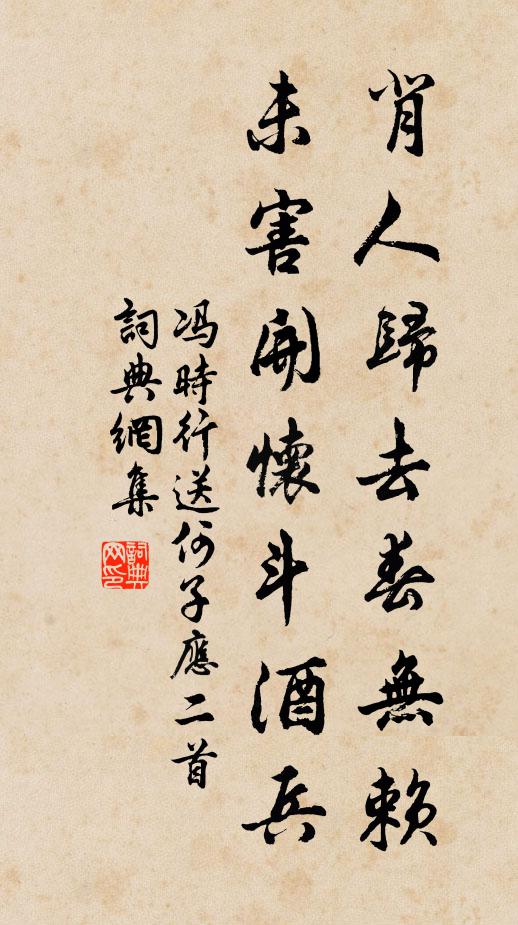 肖人歸去春無賴
未害開懷斗酒兵
冯時行送何子應二首
詞典網集
詞典网印